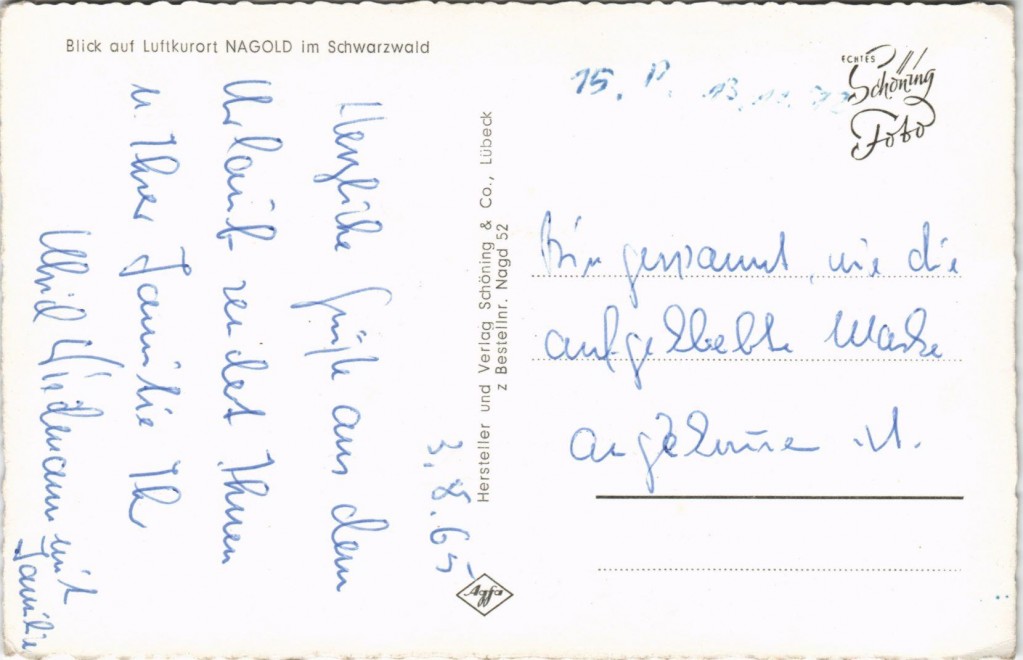 Blick auf Luftkurort NAGOLD im Schwarzwald
ECHTES
Schöning
Foto
15. P. 13.
3. 8. 65
Herzliche Grüße aus dem
Urlaub sendet Ihnen
u. Ihrer Familie Ihr
Wiedemann mit
Familie
Hersteller und Verlag Schöning & Co., Lübeck
z Bestellnr. Nagd 52
Bin gespannt, wie die
aufgeklebte Marke
angekommen ist.
Agfa